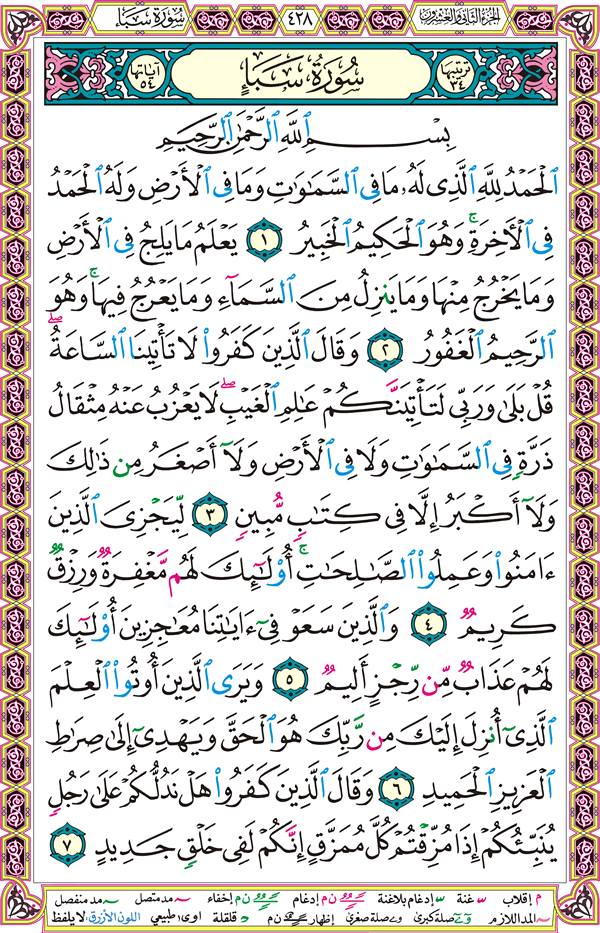 الجزء الثاني والعشرون ٤٢٨ سورة سبأ
ترتيبها ٣٤ سورة سبإ آياتها ٥٤
بِسْمِ ٱللَّهِ ٱلرَّحْمَٰنِ ٱلرَّحِيمِ
ٱلْحَمْدُ لِلَّهِ ٱلَّذِى لَهُۥ مَا فِى ٱلسَّمَٰوَٰتِ وَمَا فِى ٱلْأَرْضِ وَلَهُ ٱلْحَمْدُ
فِى ٱلْأَخِرَةِ ۚ وَهُوَ ٱلْحَكِيمُ ٱلْخَبِيرُ ١ يَعْلَمُ مَا يَلِجُ فِى ٱلْأَرْضِ
وَمَا يَخْرُجُ مِنْهَا وَمَا يَنزِلُ مِنَ ٱلسَّمَآءِ وَمَا يَعْرُجُ فِيهَا ۚ وَهُوَ
ٱلرَّحِيمُ ٱلْغَفُورُ ٢ وَقَالَ ٱلَّذِينَ كَفَرُوا۟ لَا تَأْتِينَا ٱلسَّاعَةُ ۖ
قُلْ بَلَىٰ وَرَبِّى لَتَأْتِيَنَّكُمْ عَٰلِمِ ٱلْغَيْبِ ۖ لَا يَعْزُبُ عَنْهُ مِثْقَالُ
ذَرَّةٍ فِى ٱلسَّمَٰوَٰتِ وَلَا فِى ٱلْأَرْضِ وَلَآ أَصْغَرُ مِن ذَٰلِكَ
وَلَآ أَكْبَرُ إِلَّا فِى كِتَٰبٍ مُّبِينٍ ٣ لِّيَجْزِىَ ٱلَّذِينَ
ءَامَنُوا۟ وَعَمِلُوا۟ ٱلصَّٰلِحَٰتِ ۚ أُو۟لَٰٓئِكَ لَهُم مَّغْفِرَةٌ وَرِزْقٌ
كَرِيمٌ ٤ وَٱلَّذِينَ سَعَوْ فِىٓ ءَايَٰتِنَا مُعَٰجِزِينَ أُو۟لَٰٓئِكَ
لَهُمْ عَذَابٌ مِّن رِّجْزٍ أَلِيمٌ ٥ وَيَرَى ٱلَّذِينَ أُوتُوا۟ ٱلْعِلْمَ
ٱلَّذِىٓ أُنزِلَ إِلَيْكَ مِن رَّبِّكَ هُوَ ٱلْحَقَّ وَيَهْدِىٓ إِلَىٰ صِرَٰطِ
ٱلْعَزِيزِ ٱلْحَمِيدِ ٦ وَقَالَ ٱلَّذِينَ كَفَرُوا۟ هَلْ نَدُلُّكُمْ عَلَىٰ رَجُلٍ
يُنَبِّئُكُمْ إِذَا مُزِّقْتُمْ كُلَّ مُمَزَّقٍ إِنَّكُمْ لَفِى خَلْقٍ جَدِيدٍ ٧
م إقلاب غنة إدغام بلاغنة ن م إدغام ن م إخفاء مد متصل مد منفصل
المد اللازم صلة كبرى صلة صغرى إظهار ن م قلقلة اوى: طبيعي اللون الأزرق: لا يلفظ